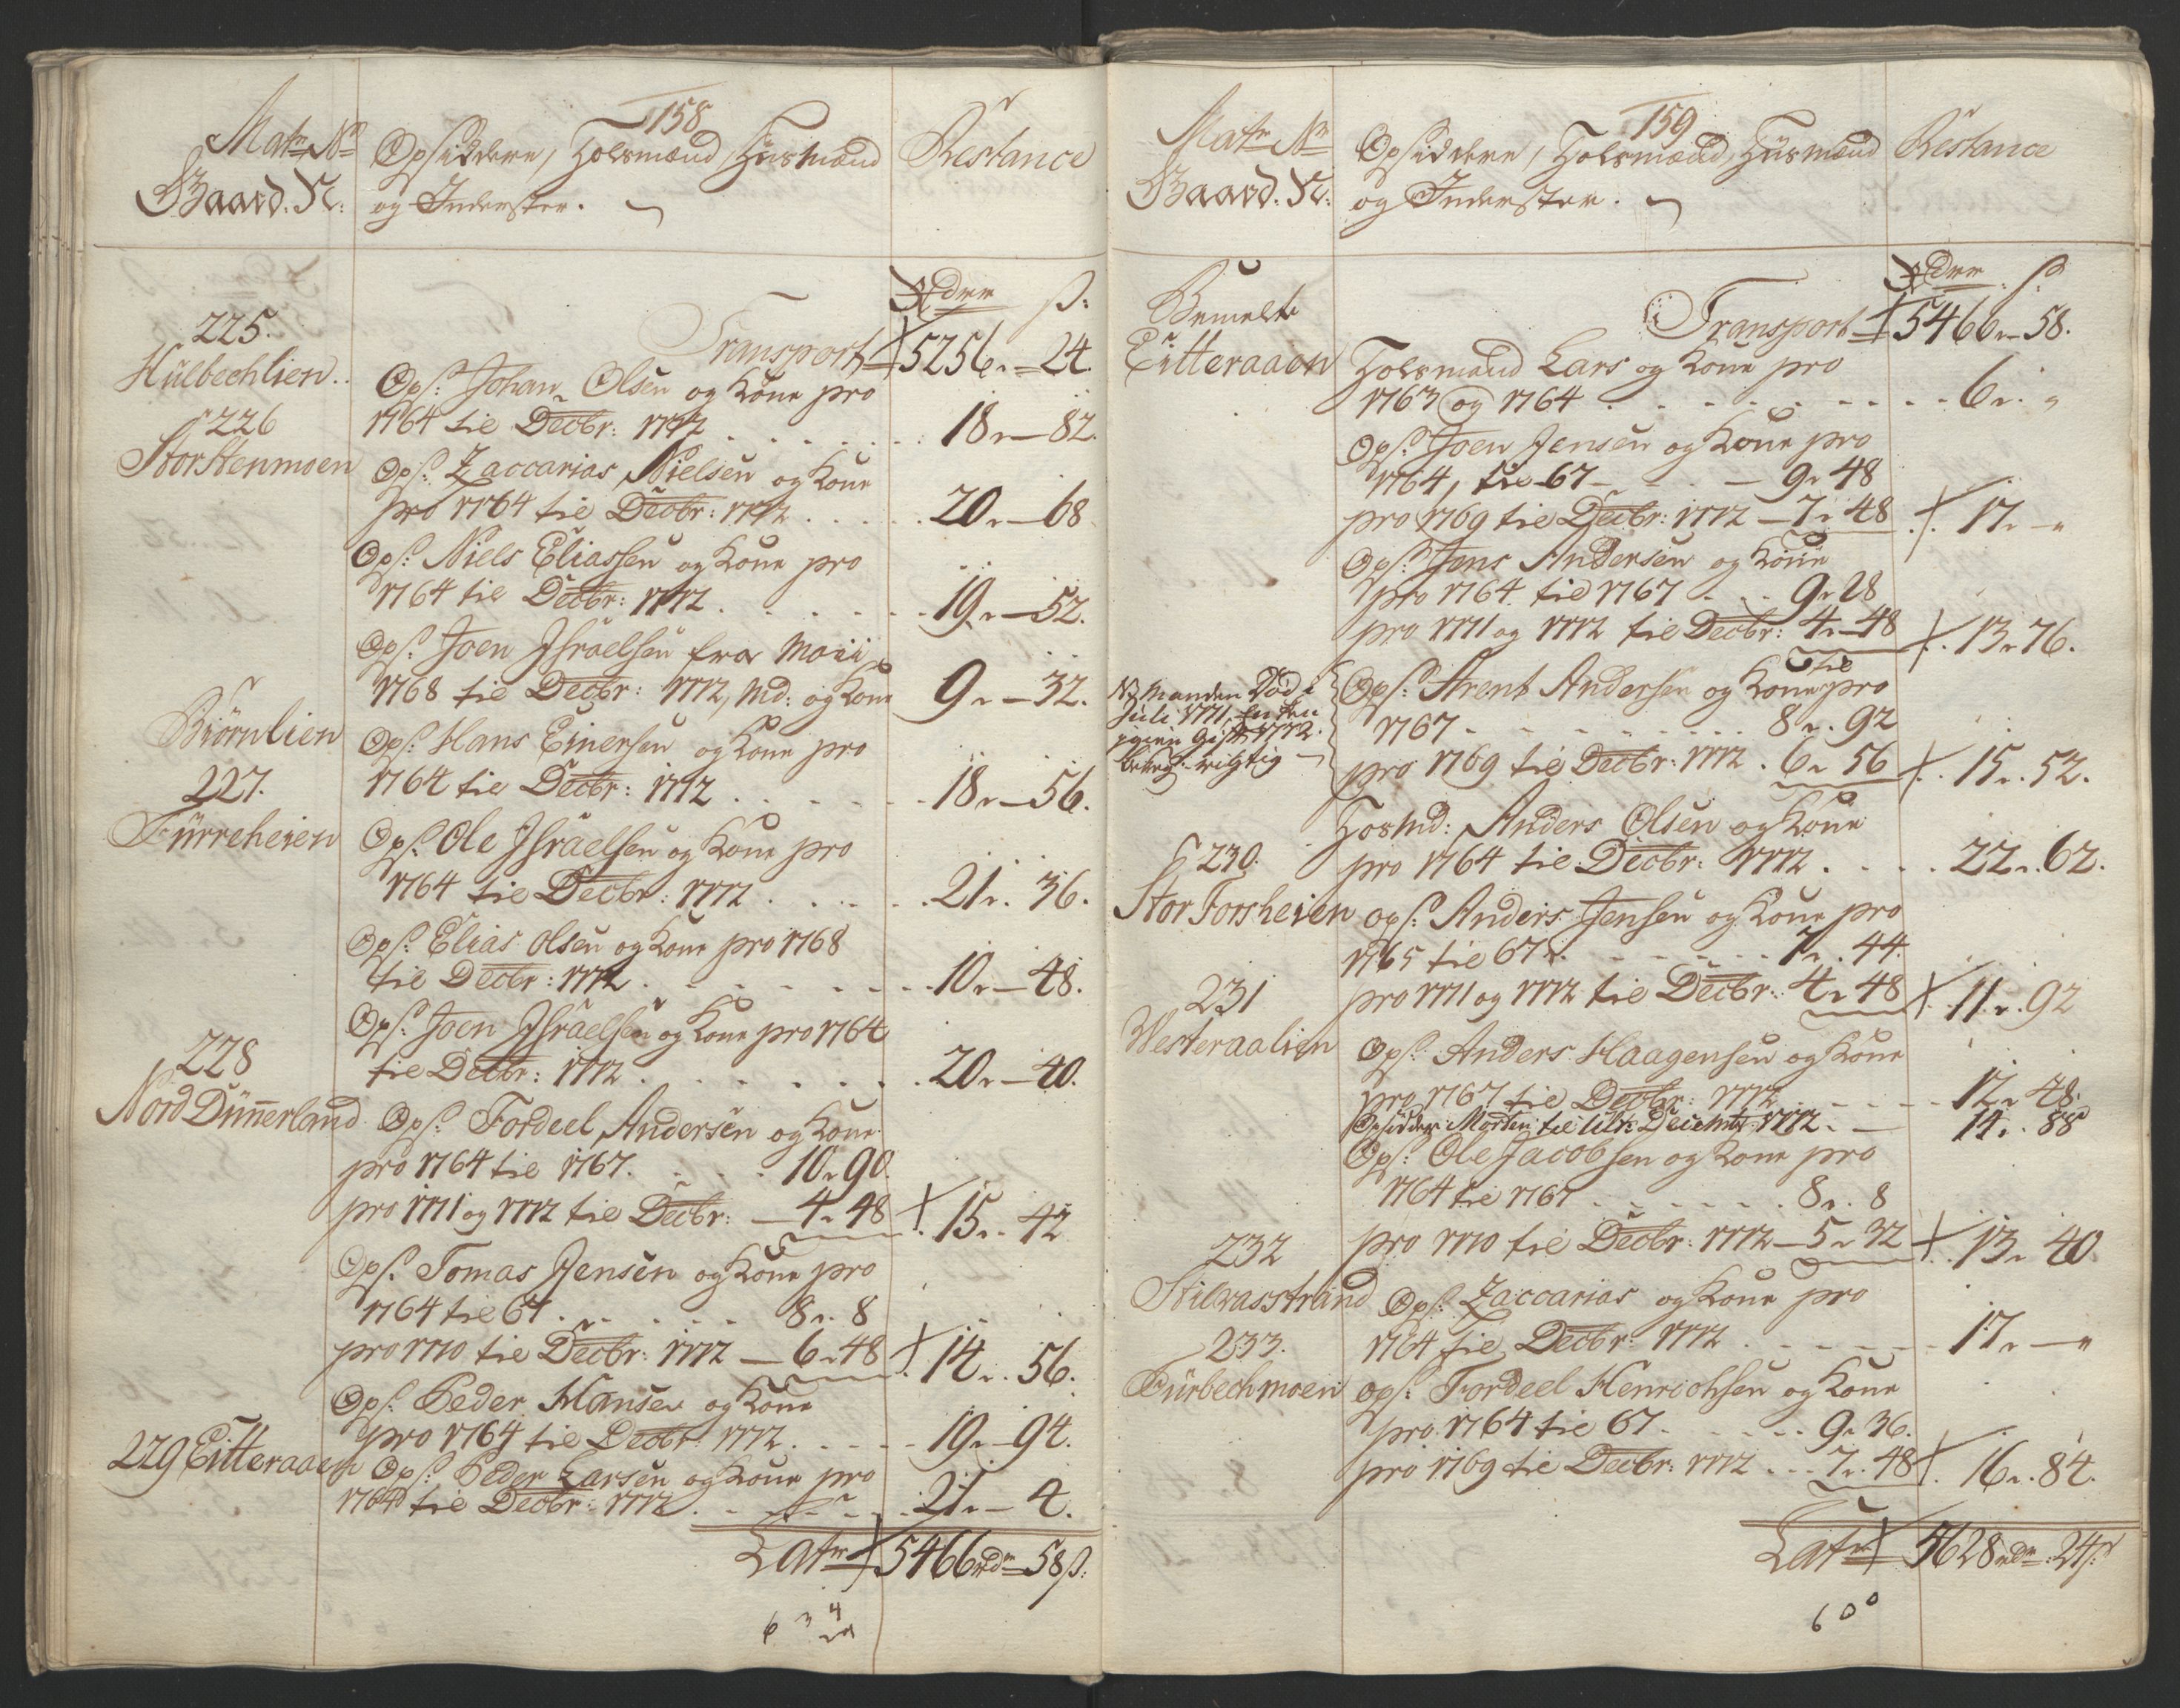 158
Matr: No
Gaard. N:
Opsiddere, Holsmænd, Husmænd
og Inderster.
Restance
Rdrr ß:
Transport 5256 r 24.
225.
Hülbechlien
Ops: Johan Olsen og Kone pro
1764 til Decbr: 1772 . . . . . . 18 r 82.
226
Stor Stenmoen
Ops: Zaccarias Nielsen og Kone
pro 1764 til Decbr: 1772 . . . . . 20 r 68
Ops: Niels Eliassen og Kone pro
1764 til Decbr: 1772 . . . . . . 19 r 52.
Ops: Joen Jsraelsen fra Maii
1768 til Decbr: 1772, Md: og Kone 9 r 32.
Biörnlien
Ops: Hans Einersen og Kone pro
1764 til Decbr: 1772 . . . . . . 18 r 56.
227.
Fürreheien
Ops: Ole Jsraelsen og Kone pro
1764 til Decbr: 1772 . . . . . . 21 r 36.
Ops: Elias Olsen og Kone pro 1768
til Decbr: 1772 . . . . . . . 10 r 48.
Ops: Joen Jsraelsen og Kone pro 1764
til Decbr: 1772 . . . . . . . 20 r 40.
228
Nord Dünnerland
Ops: Fordeel Andersen og Kone
pro 1764 til 1767. . . . 10 r 90.
pro 1771 og 1772 til Decbr: 4 r 48 15 r 42
Ops: Tomas Jensen og Kone pro
1764 til 67 . . . . . . 8 r 8
pro 1770 til Decbr: 1772 6 r 48 14 r 56.
Ops: Peder Hansen og Kone
pro 1764 til Decbr: 1772 . . . . . 19 r 94.
229 Eitteraaen
Ops: Peder Larsen og Kone pro
1764 til Decbr: 1772 . . . . . . 21 r 4.
Latr 5466 rdr 58 ß:
6 3 4
159
Matr No
Gaard. N:
Opsiddere, Holsmænd, Husmænd
og Inderster.
Restance
Rdrr ß
Transport 5466 r 58.
Bemelte
Eitteraaen
Holsmand Lars og Kone pro
1763 og 1764 . . . . . . . . 6 r "
Ops: Joen Jensen og Kone pro
1764, til 67 9 r 48
pro 1769 til Decbr: 1772 7 r 48 17 r "
Ops: Jens Andersen og Kone
pro 1764 til 1767 . . . 9 r 28
pro 1771 og 1772 til Decbr: 4 r 48 13 r 76.
NB Manden Död i
Juli 1771, Enken
igien Gift 1772.
rigtig
Ops: Arent Andersen og Kone pro
til
1767 . . . . . . . 8 r 92
pro 1769 til Decbr: 1772 . 6 r 56 15 r 52.
Hosmd: Anders Olsen og Kone
pro 1764 til Decbr: 1772 . . . . 22 r 62.
230.
Stor Forsheien
Ops: Anders Jensen og Kone pro
1765 til 67 . . . . . . 7 r 44.
pro 1771 og 1772 til Decbr: 4 r 48 11 r 92
231
Westeraalien
Ops: Anders Haagensen og Kone
pro 1767 til Decbr: 1772 . . . . . 12 r 48.
Opsidder Morten til Ult: Decembr 1772. 14 r 88
Ops: Ole Jacobsen og Kone pro
1764 til 1767 . . . . . . 8 r 8
pro 1770 til Decbr: 1772 5 r 32 13 r 40
232
Stilvasstrand
Ops: Zaccarias og Kone pro
1764 til Decbr: 1772 . . . . . . 17 r "
233.
Fürbechmoen
Ops: Fordeel Henrichsen og Kone
pro 1764 til 67 . . . . . 9 r 36.
pro 1769 til Decbr: 1772 . . . 7 r 48 16 r 84.
Latr 5628 rdr: 24 ß
6 0 0